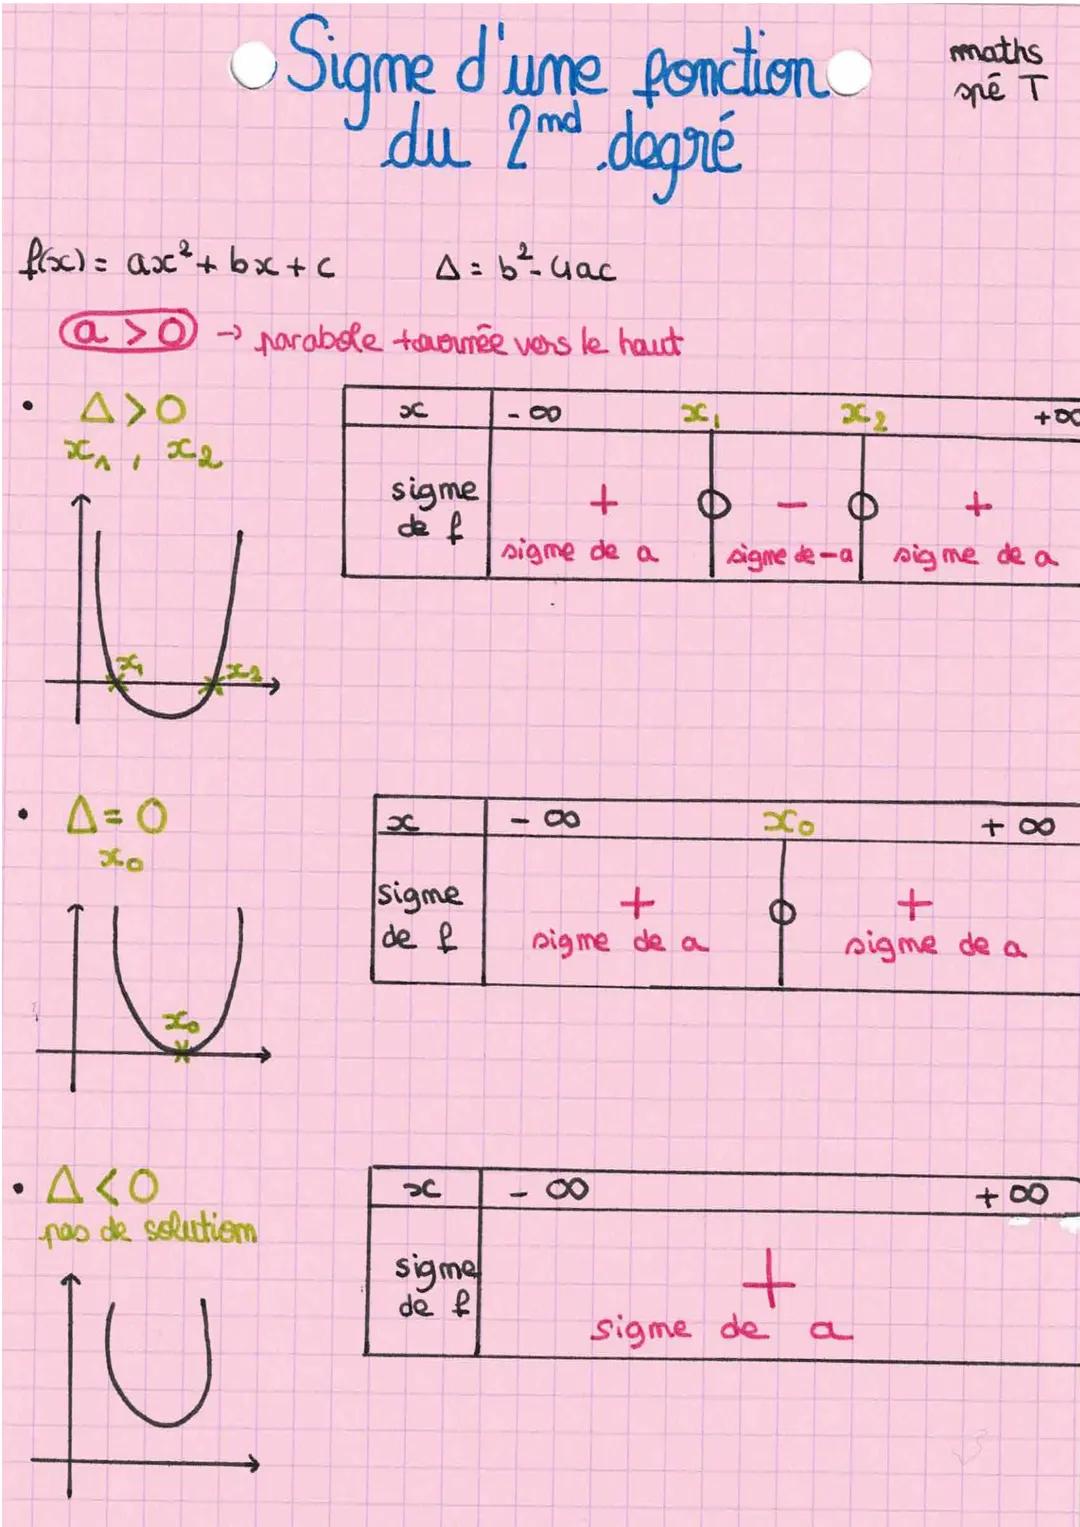 Signe d'une fonction
du 2nd degré
maths
spé T
f(x) = ax² + bx + c
Δ = b² - 4ac
a > 0 → parabole tournée vers le haut
• Δ > 0
x₁, x₂
x -∞ x₁ x₂ +∞
signe
de f
+ - +
signe de a signe de -a signe de a
x₁ x₂
• Δ = 0
x₀
x -∞ x₀ +∞
signe
de f
+ +
signe de a signe de a
x₀
• Δ < 0
pas de solution
x -∞ +∞
signe
de f
+
signe de a